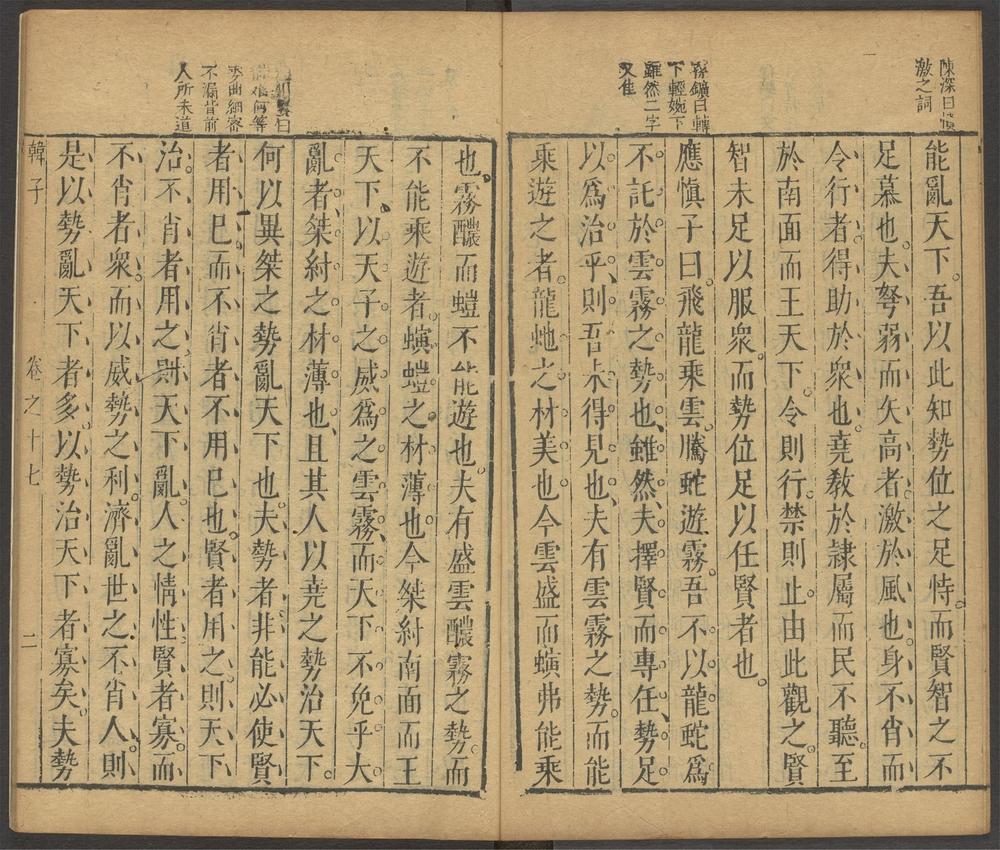 陳深曰慎
激之詞
能亂天下。吾以此知勢位之足恃。而賢智之不
足慕也。夫弩弱而矢高者。激於風也。身不肖而
令行者。得助於衆也。堯敎於隷屬而民不聽。至
於南面而王天下。令則行。禁則止。由此觀之。賢
智未足以服衆。而勢位足以任賢者也。
孫鑛曰轉
下輕婉下
雖然二字
又佳
應愼子曰。飛龍乘雲。騰蛇遊霧。吾不以龍蛇爲
不託於雲霧之勢也。雖然。夫擇賢而專任勢。足
以爲治乎。則吾未得見也。夫有雲霧之勢。而能
乘遊之者。龍虵之材美也。今雲盛而螾弗能乘
也。霧醲而螘不能遊也。夫有盛雲醲霧之勢。而
不能乘遊者。螾螘之材薄也。今桀紂南面而王
天下。以天子之威爲之雲霧。而天下不免乎大
亂者。桀紂之材薄也。且其人以堯之勢治天下。
曰
何等
曲細密
不漏皆前
人所未道
何以異桀之勢亂天下也。夫勢者。非能必使賢
者用巳。而不肖者不用巳也。賢者用之。則天下
治。不肖者用之。則天下亂。人之情性。賢者寡。而
不肖者衆。而以威勢之利。濟亂世之不肖人。則
是以勢亂天下者多。以勢治天下者寡矣。夫勢
韓子
卷之十七
二